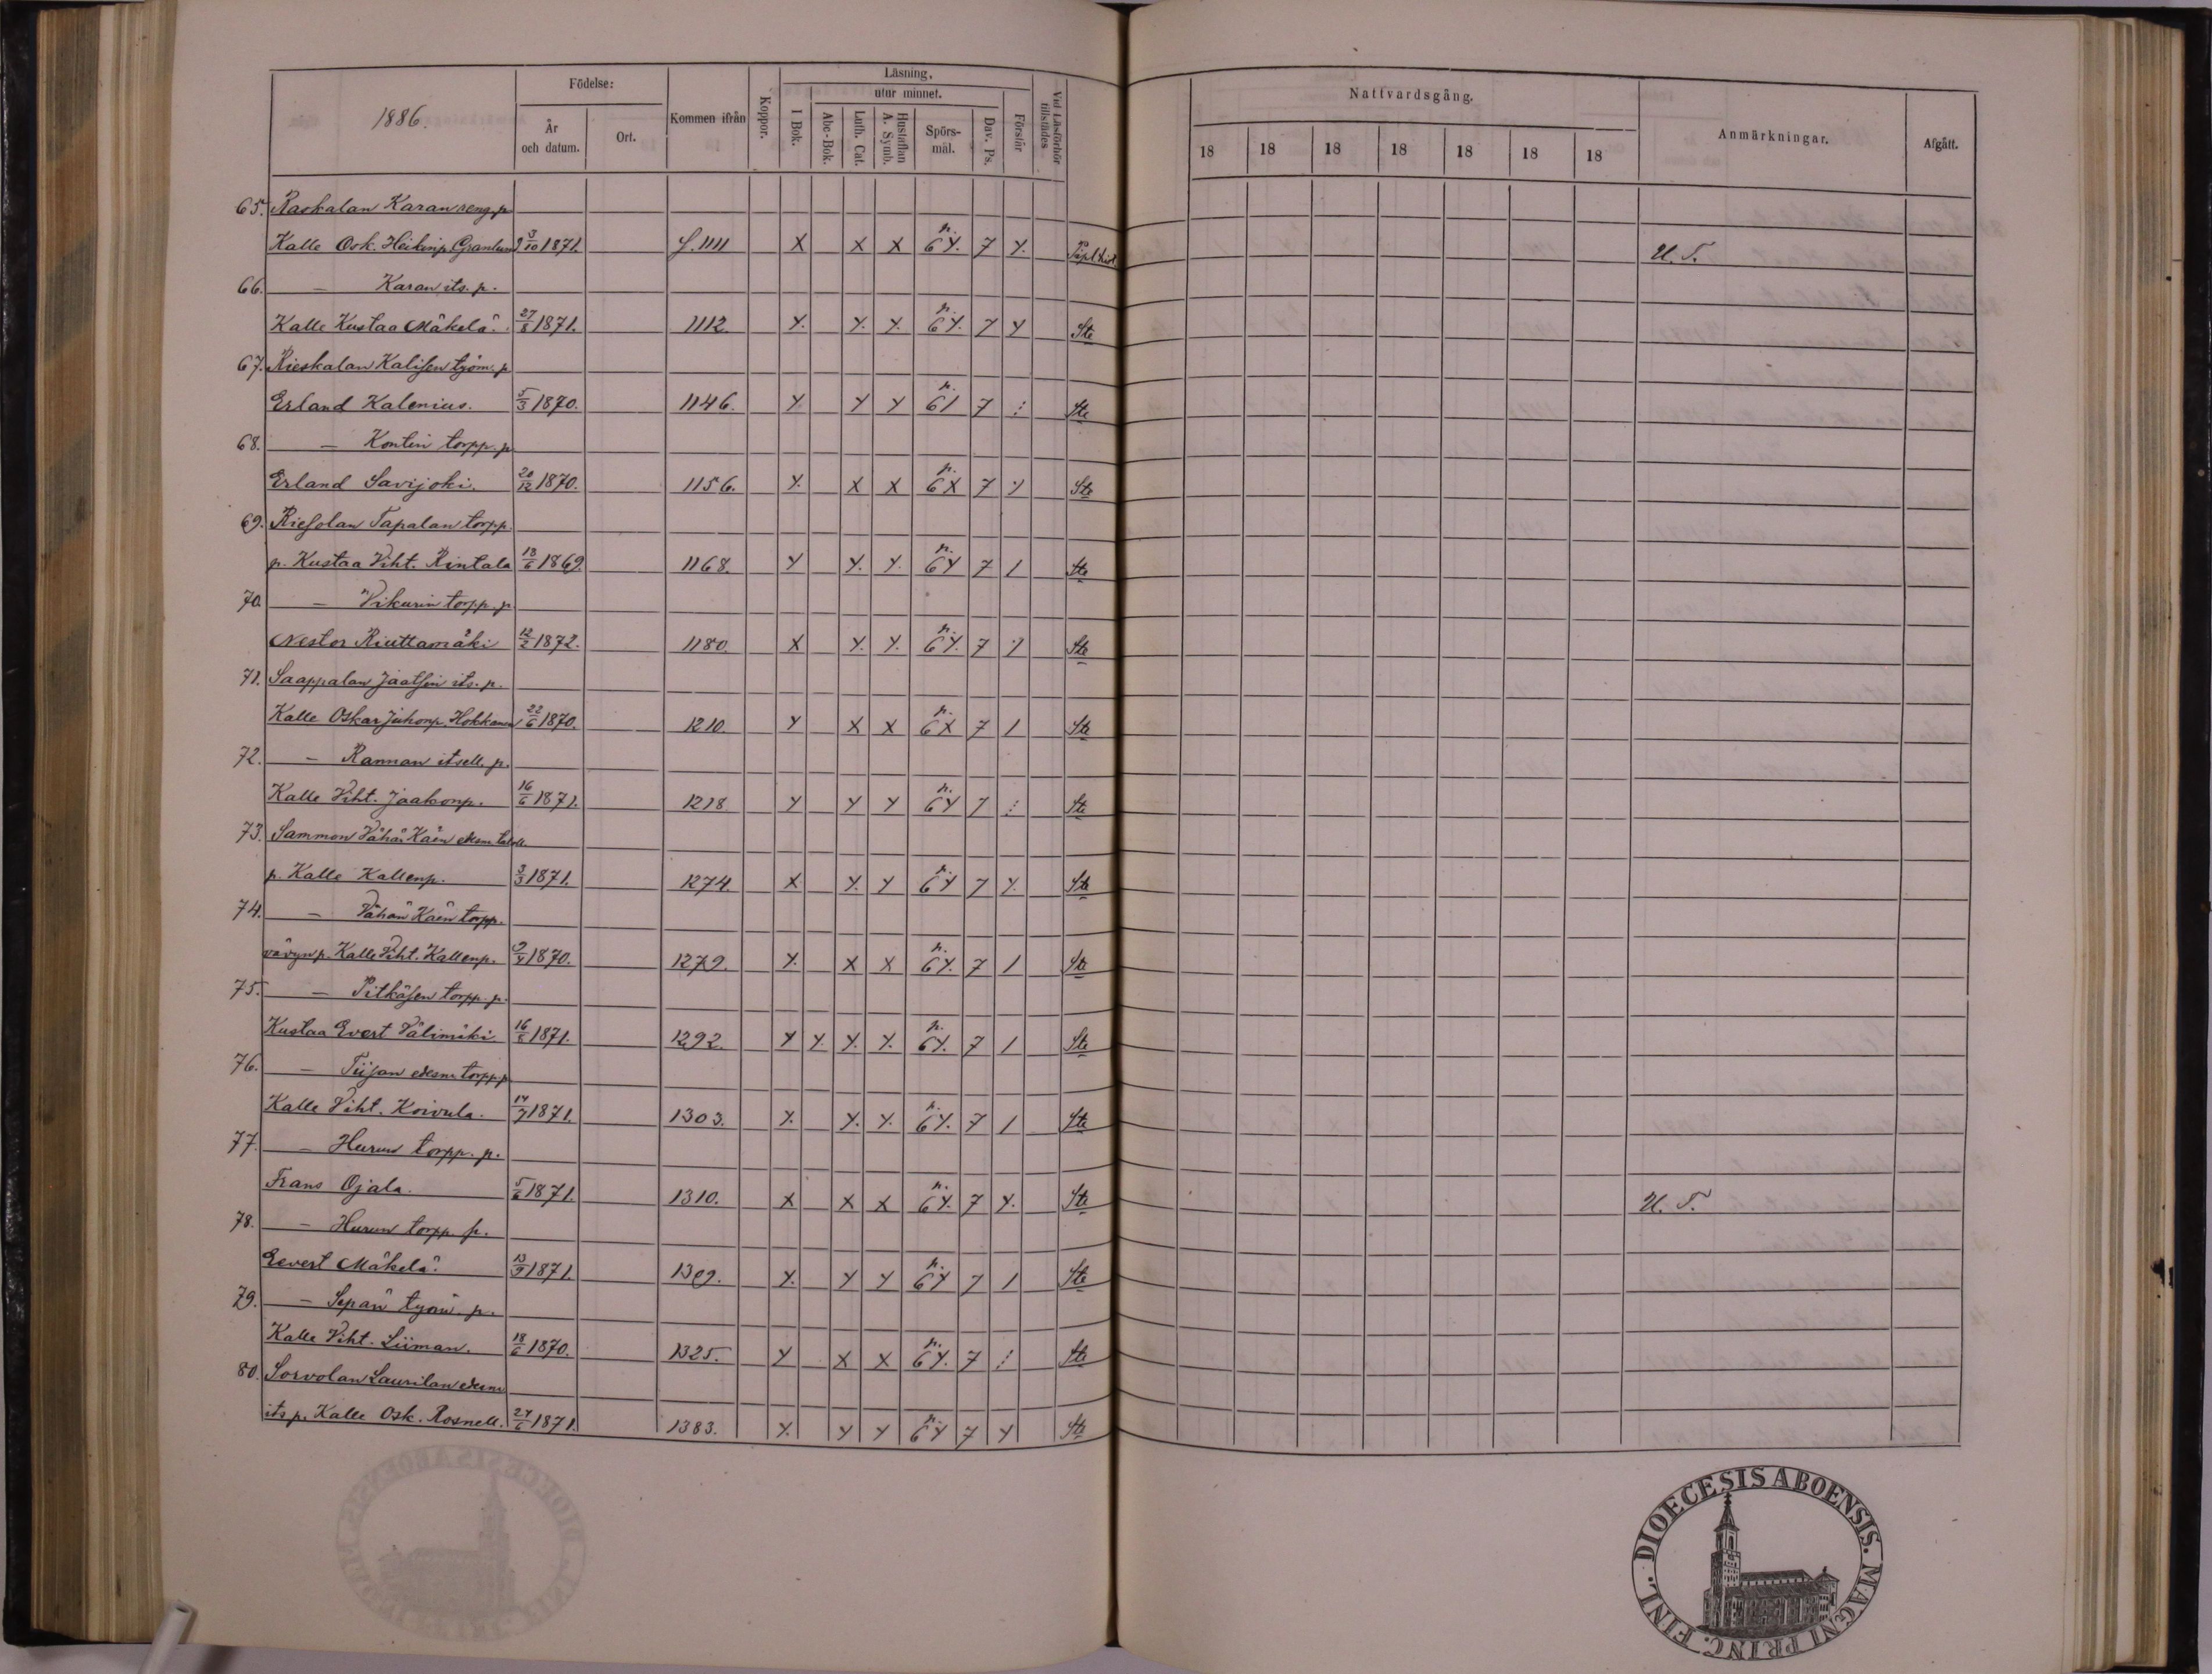 1886.
Födelse:
År och datum.
Ort.
Kommen ifrån
Koppor.
Läsning,
I Bok.
utur minnet.
Abc-Bok.
Luth. Cat.
Hustaflan A. Symb.
Spörs-mål.
Dav. Ps.
Förstår
Vid Läsförhör tillstädes
Nattvardsgång.
18 18 18 18 18 18 18
Anmärkningar.
Afgått.
65. Raskalan Karan reng. p.
Kalle Osk. Heikinp. Granlund 3/10 1871. f. 1111 X X X n. 6 Y. 7 Y. U. T.
66. — Karan its. p.
Kalle Kustaa Mäkelä. 27/8 1871. 1112. Y. Y. Y. n. 6 Y. 7 Y Ste
67. Rieskalan Kalisen työm. p
Erland Kalenius. 5/3 1870. 1146. Y Y Y n. 6 1 7 : Ste
68. — Kontin torpp. p
Erland Savijoki. 20/12 1870. 1156. Y. X X n. 6 X 7 Ste
69. Riesolan Tapalan torpp.
p. Kustaa Viht. Rintala 13/6 1869. 1168. Y Y. Y. n. 6 Y 7 1 Ste
70. — Vikurin torpp. p
Nestor Riuttamäki 12/2 1872. 1180. X Y. Y. n. 6 Y. 7 Ste
71. Saappalan Jaatsin its. p.
Kalle Oskar Juhonp. Hokkanen 22/6 1870. 1210. Y X X n. 6 X 7 1 Ste
72. — Rannan itsell. p.
Kalle Viht. Jaakonp. 16/6 1871. 1218 Y Y Y n. 6 Y 7 : Ste
73. Sammon Vähä Käen edesm. taloll.
p. Kalle Kallenp. 3/3 1871. 1274. X Y. Y n. 6 Y 7 Y. Ste
74. — Vähän Käen torpp.
vävyn p. Kalle Viht. Kallenp. 1870. 1279. Y. X X n. 6 Y. 7 1 Ste
75. — Pitkäsen torpp. p.
Kustaa Evert Välimäki 16/8 1871. 1292. Y Y. Y. Y. n. 6 Y. 7 1 Ste
76. — Tiijan edesm. torpp. p
Kalle Viht. Koivula. 14/7 1871. 1303. Y. Y. Y. n. 6 Y. 7 1 Ste
77. — Hurun torpp. p.
Frans Ojala. 5/6 1871. 1310. X X X n. 6 Y. 7 Y. Ste U. T.
78. — Hurun torpp. p.
Eevert Mäkelä. 13/9 1871. 1309. Y. Y Y n. 6 Y 7 1 Ste
79. — Sepän työm. p.
Kalle Viht. Liiman. 18/6 1870. 1325. Y X X n. 6 Y. 7 : Ste
80. Sorvolan Laurilan edesm
its p. Kalle Osk. Rosnell. 24/6 1871. 1383. Y. Y Y n. 6 Y 7 Y Ste
DIOECESIS ABOENSIS. MAGNI PRINC. FINL.